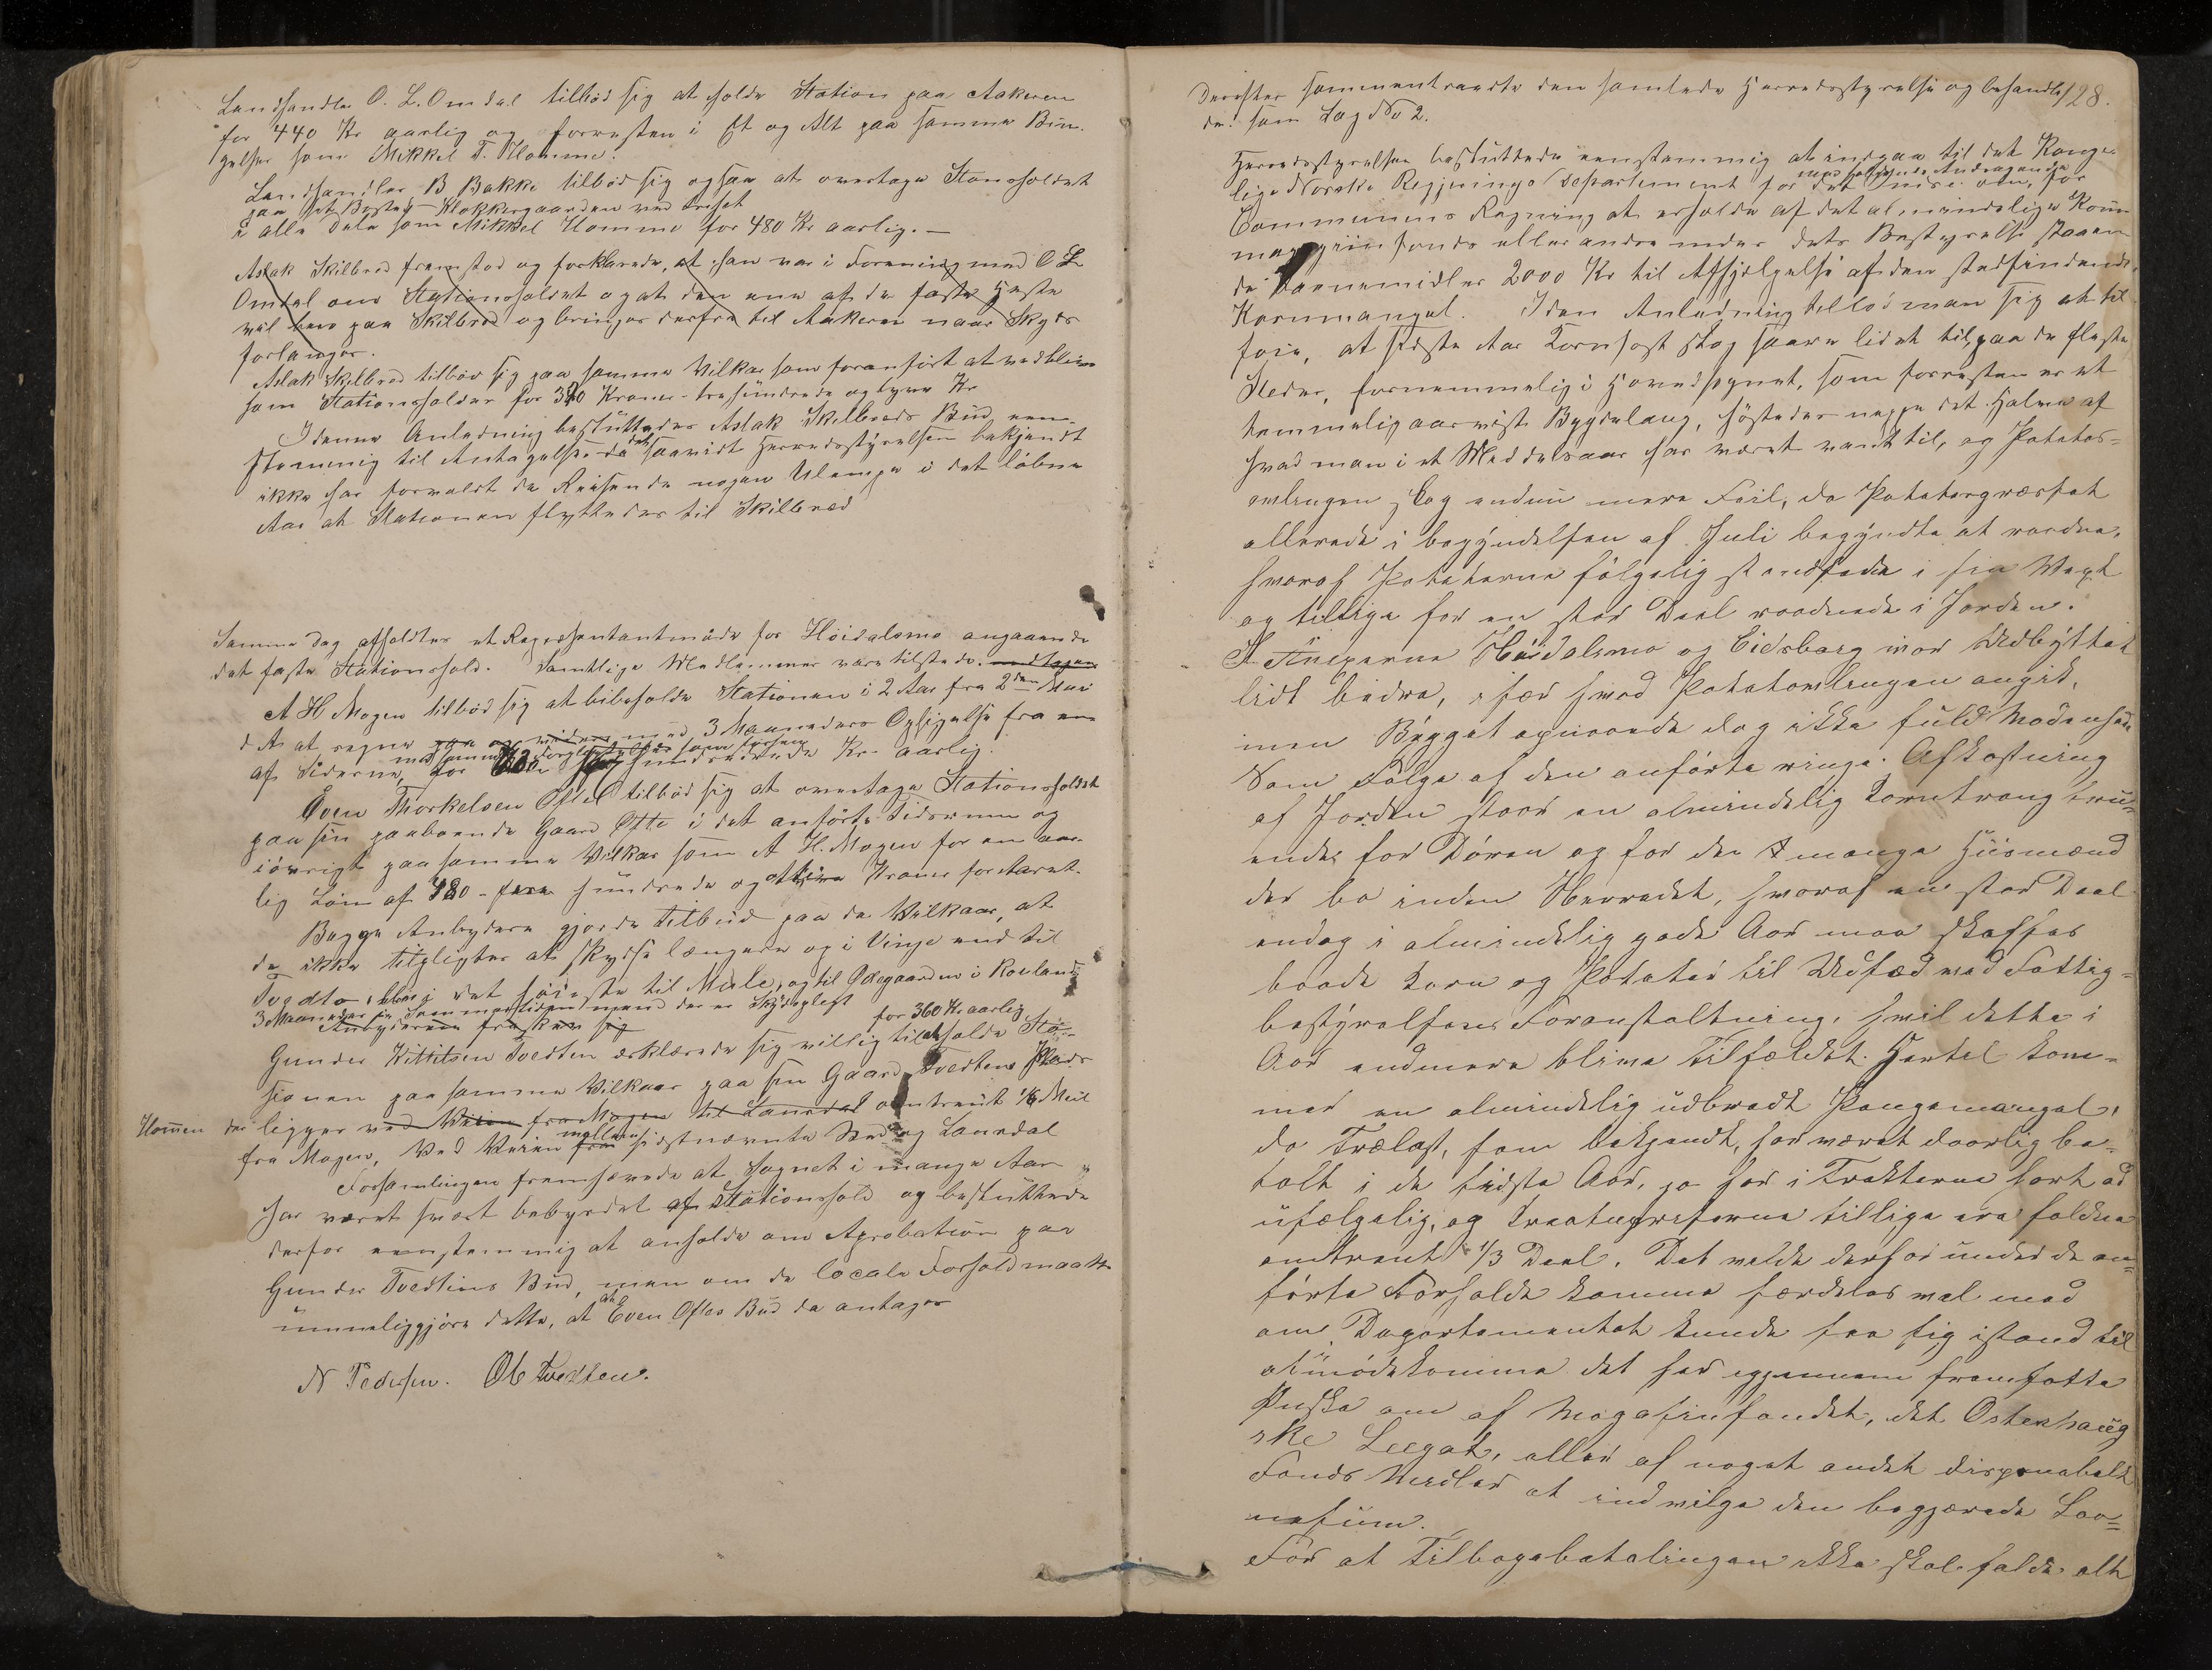 Landhandler O. L. Omdal tilbød sig at holde Station paa Aakeren
for 440 Kr aarlig og forresten i Et og Alt paa samme Betin-
gelser som Mikkel T. Homme.
Landhandler B Bakke tilbød sig ogsaa at overtage Stansholdet
paa sit Bosted - Klokkergaarden ved
i alle Dele som Mikkel Homme for 480 Kr aarlig. —
Aslak Skilbred fremstod og forklarede, at han var i Forening med O L
Omdal om Stationsholdet og at den ene af de faste Heste
vil være paa Skilbred og bringes derfra til Aakeren naar Skyds
forlanges.
Aslak Skilbred tilbød sig paa samme Vilkaar som foranført at vedblive
som Stationsholder for 320 Kroner - trehundrede og tyve Kr
I denne Anledning besluttedes Aslak Skilbreds Bud een-
stemmig til Antagelse da det saavidt Herredsstyrelsen bekjendt
ikke har forvoldt de Reisende nogen Ulempe i det løbne
Aar at Stationen flyttedes til Skilbred
Samme Dag afholdtes et Repræsentantmøde for Høidalsmo angaaende
det faste Stationshold. Samtlige Medlemmer vare tilstede.
A H Mogen tilbød sig at bibeholde Stationen i 2 Aar fra 2den Mai
d A at regne med 3 Maaneders Opsigelse fra en
af Siderne, for hundrede Kr. aarlig.
Even Thorkelsen Ofte tilbød sig at overtage Stationsholdet
paa sin paaboende Gaard Ofte i det anførte Tidsrum og
iøvrigt paa samme Vilkaar som A H. Mogen for en aar-
lig Løn af 480 - fire hundrede og ottine Kroner for Aaret.
Begge Anbydere gjorde Tilbud paa de Vilkaar, at
de ikke tilpligtes at skydse længere op i Vinje end til
det høieste til Mule, og til Ødegaarden i Rauland
3 Maaneder i Sommertiden
Anbyderne frasken sig for 360 Kr aarlig
Gunder Kittilsen Tvedten erklærede sig villig til at holde Sta-
sionen paa samme Vilkaar paa sin Gaard Tvedtens Plads
Homen der ligger ved Veien fra Mogen til Laurdal omtrent 1/8 Miil
fra Mogen, Ved Veien mellem sidstnævnte Sted og Laurdal
Forsamlingen fremhævede at Sognet i mange Aar
har været svært bebyrdet af Stationshold og besluttede
derfor eenstemmig at anholde om Aprobation paa
Gunder Tvedtens Bud, men om de locale Forhold maatte
umueliggjøre dette, at Even Oftes Bud da antages
N Pedersen. Ole Tvedten.
128.
Derefter sammentraadte den samlede Herredsstyrelse og behandle-
de som Sag No 2.
Herredsstyrelsen besluttede eenstemmig at indgaa til det Konge-
lige Norske Regjerings Departement for det Indre om, for
med følgende Andragende
Communens Regning at erholde af det almindelige Korn-
magasinfonds eller andre under dets Bestyrelse staaen-
de Laanemidler 2000 Kr til Afhjælpelse af den stedfindende
Kornmangel. I den Anledning tillod man sig at til-
føie, at sidste Aars Kornhøst slog saare lidet til, paa de fleste
Steder, fornemmelig i Hovedsognet, som forresten er et
temmelig aarvist Bygdelaug, høstedes neppe det Halve af
hvad man i et Middelsaar har været vandt til, og Potetes-
avlingen slog endnu mere Feil, da Potetesgræsset
allerede i begyndelsen af Juli begyndte at raadne,
hvoraf Poteterne følgelig standsede i sin Vext
og tillige for en stor Deel raadnede i Jorden.
I Anexerne Høidalsmo og Eidsborg var Udbyttet
lidt bedre, især hvad Potetavlingen angik,
men Bygget opnaaede dog ikke fuld Modenhed
Som Følge af den anførte ringe Afkastning
af Jorden staar en almindelig Korntrang tru-
ende for Døren og for de mange Huusmænd
der bo inden Herredet, hvoraf en stor Deel
endog i almindelig gode Aar maa skaffes
baade Korn og Poteter til Udsæd ved Fattig-
bestyrelsens Foranstaltning, hvil dette i
Aar endmere blive Tilfældet. Hertil kom-
mer en almindelig udbredt Pengemangel,
da Trælast, som bekjendt, har været daarlig be-
talt i de sidste Aar, ja her i Trakterne hart ad
usælgelig, og Kreaturpriserne tillige ere faldne
omtrent 1/3 Deel. Det vilde derfor under de an-
førte Forholde komme særdeles vel med
om Departementet kunde see sig istand til
at imødekomme det her igjennem fremsatte
Ønske om af Magasinfondet, det Osterhaug
ske Leegat, eller af noget andet disponabelt
Fonds Midler at indvilge den begjærede Laa-
nesum.
For at Tilbagebetalingen ikke skal falde alt